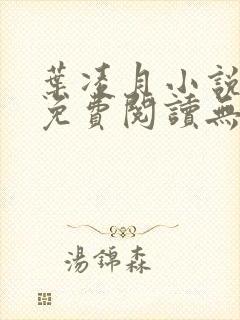 葉凌月小說
免費閱讀無
湯錦森